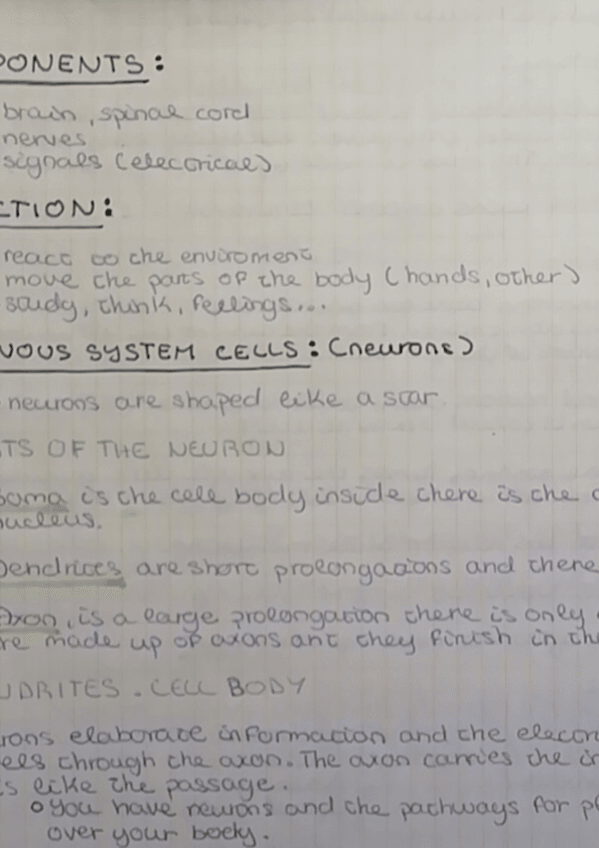 PONENTS:
brain, spinal cord
nerves
signals (electrical)
CTION:
react to the enviroment
move the parts of the body (hands, other)
study, think, feelings...
VOUS SYSTEM CELLS: (neurons)
neurons are shaped like a star.
TS OF THE NEURON
Soma is the cell body inside there is the
nucleus.
Dendrites are short prolongations and there
Axon, is a large prolongation there is only
re made up of axons ant they finish in th
NDRITES. CELL BODY
rons elaborate information and the electr
els through the axon. The axon carries the
s like the passage.
o you have neurons and the pathways for
over your body.